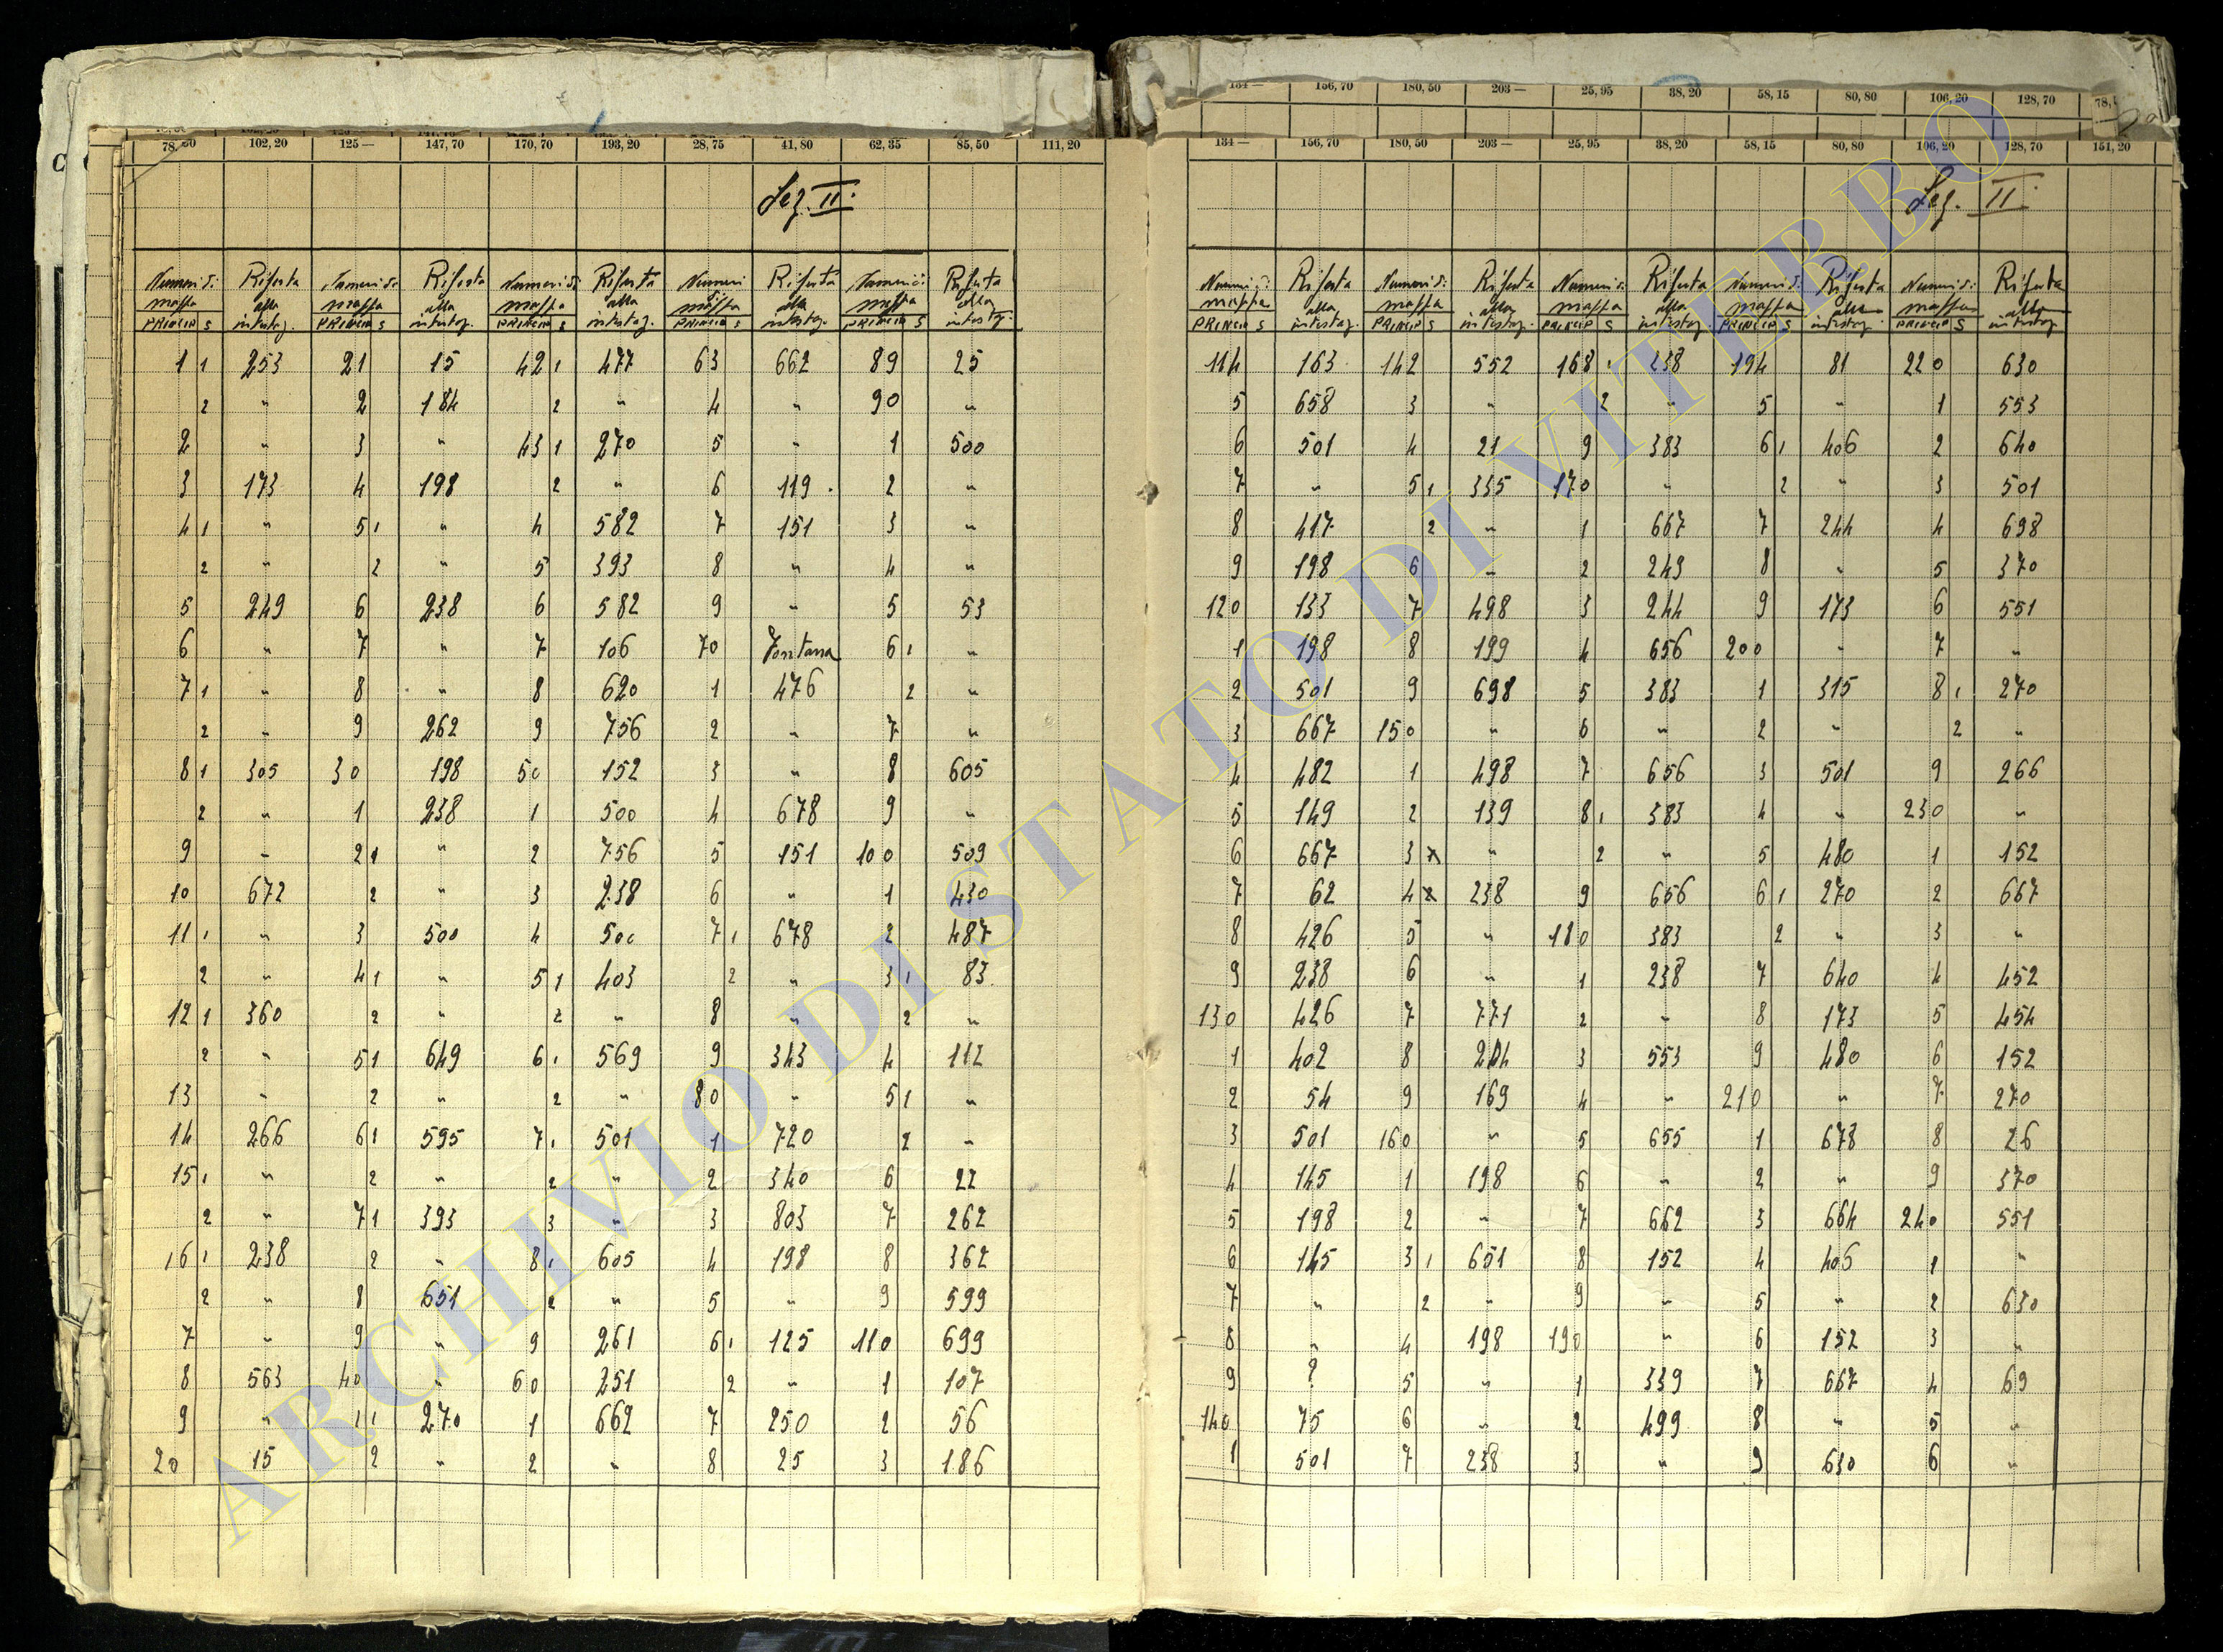 134 — 156,70 180,50 203 — 25,95 38,20 58,15 80,80 106,20 128,70
78,50 102,20 125 — 147,70 170,70 193,20 28,75 41,80 62,35 85,50 111,20
Sez. II.
Numeri di mappa Rifer.ta alla intestaz. Numeri di mappa Riferta alla intestaz. Numeri di mappa Riferta alla intestaz. Numeri di mappa Riferta alla intestaz. Numeri di mappa Riferta alla intestaz.
PRINCIP S PRINCIP S PRINCIP S PRINCIP S PRINCIP S
1 1 253 21 15 42 1 477 63 662 89 25
2 " 2 184 2 " 4 " 90 "
2 " 3 " 43 1 270 5 " 1 500
3 173 4 198 2 " 6 119 2 "
4 1 " 5 1 " 4 582 7 151 3 "
2 " 2 " 5 393 8 " 4 "
5 249 6 238 6 582 9 " 5 53
6 " 7 " 7 106 70 Fontana 6 1 "
7 1 " 8 " 8 620 1 476 2 "
2 " 9 262 9 756 2 " 7 "
8 1 305 30 198 50 152 3 " 8 605
2 " 1 238 1 500 4 678 9 "
9 " 2 1 " 2 756 5 151 100 509
10 672 2 " 3 238 6 " 1 430
11 1 " 3 500 4 500 7 1 678 2 487
2 " 4 1 " 5 1 403 2 " 3 1 83
12 1 360 2 " 2 " 8 " 2 "
2 " 5 1 649 6 1 569 9 343 4 112
13 " 2 " 2 " 80 " 5 1 "
14 266 6 1 595 7 1 501 1 720 2 "
15 1 " 2 " 2 " 2 340 6 22
2 " 7 1 393 3 " 3 803 7 262
16 1 238 2 " 8 1 605 4 198 8 362
2 " 8 651 2 " 5 " 9 599
7 " 9 " 9 261 6 1 125 110 699
8 563 40 " 60 251 2 " 1 107
9 " 1 1 270 1 662 7 250 2 56
20 15 2 " 2 " 8 25 3 186
134 — 156,70 180,50 203 — 25,95 38,20 58,15 80,80 106,20 128,70 151,20
Sez. II.
Numeri di mappa Riferta alla intestaz. Numeri di mappa Riferta alla intestaz. Numeri di mappa Riferta alla intestaz. Numeri di mappa Riferta alla intestaz. Numeri di mappa Riferta alla intestaz.
PRINCIP S PRINCIP S PRINCIP S PRINCIP S PRINCIP S
114 163 142 552 168 1 238 194 81 220 630
5 658 3 " 2 " 5 " 1 553
6 501 4 21 9 383 6 1 406 2 640
7 " 5 1 335 170 " 2 " 3 501
8 417 2 " 1 667 7 244 4 698
9 198 6 " 2 249 8 " 5 370
120 133 7 498 3 244 9 173 6 551
1 198 8 199 4 656 200 " 7 "
2 501 9 698 5 383 1 315 8 1 270
3 667 150 " 6 " 2 " 2 "
4 482 1 498 7 656 3 501 9 266
5 149 2 139 8 1 383 4 " 230 "
6 667 3 " 2 " 5 480 1 152
7 62 4 238 9 656 6 1 270 2 667
8 426 5 " 180 383 2 " 3 "
9 238 6 " 1 238 7 640 4 452
130 426 7 771 2 " 8 173 5 454
1 402 8 204 3 553 9 480 6 152
2 54 9 169 4 " 210 " 7 270
3 501 160 " 5 655 1 678 8 26
4 145 1 198 6 " 2 " 9 370
5 198 2 " 7 662 3 664 240 551
6 145 3 1 651 8 152 4 406 1 "
7 " 2 " 9 " 5 " 2 630
8 " 4 198 190 " 6 152 3 "
9 ? 5 " 1 339 7 667 4 69
140 75 6 " 2 499 8 " 5 "
1 501 7 238 3 " 9 630 6 "
ARCHIVIO DI STATO DI VITERBO